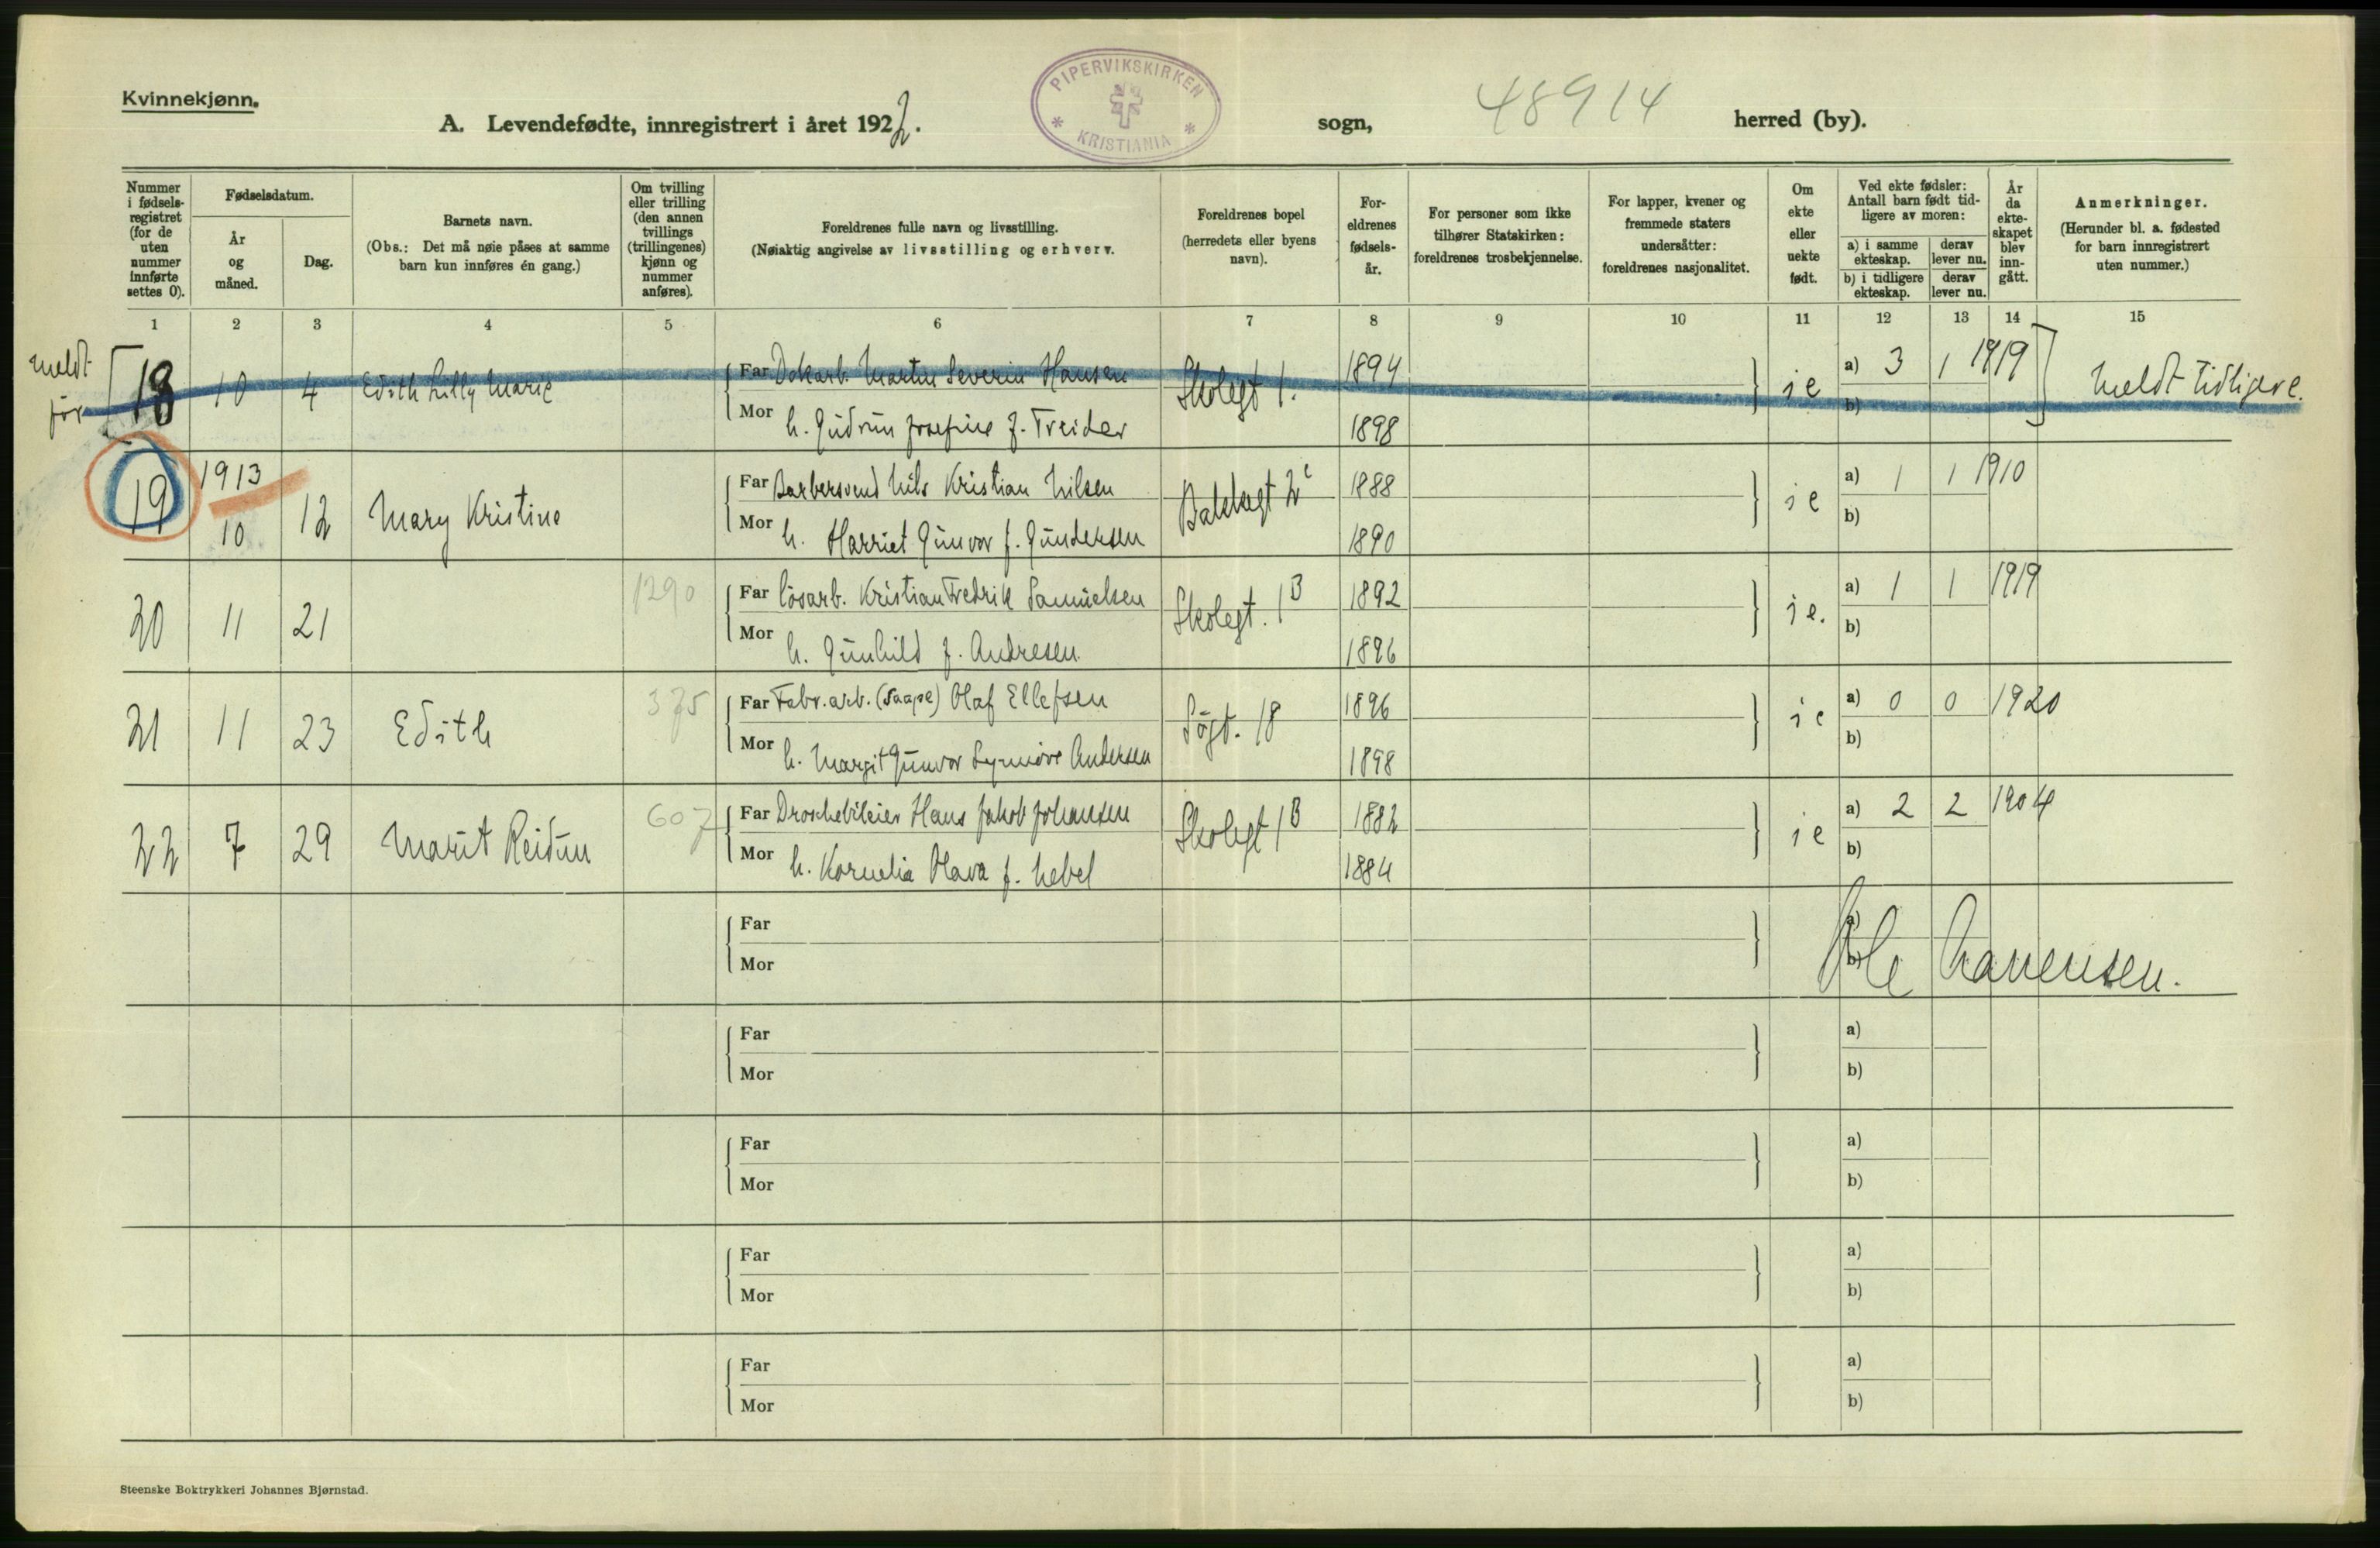 Kvinnekjønn.
A. Levendefødte, innregistrert i året 1922.
PIPERVIKSKIRKEN
* KRISTIANIA *
sogn,
48914
herred (by).
Nummer i fødsels-registret (for de uten nummer innførte settes 0).
Fødselsdatum.
År og måned.
Dag.
Barnets navn.
(Obs.: Det må nøie påses at samme barn kun innføres én gang.)
Om tvilling eller trilling (den annen tvillings (trillingenes) kjønn og nummer anføres).
Foreldrenes fulle navn og livsstilling.
(Nøiaktig angivelse av livsstilling og erhverv.
Foreldrenes bopel (herredets eller byens navn).
For-eldrenes fødsels-år.
For personer som ikke tilhører Statskirken: foreldrenes trosbekjennelse.
For lapper, kvener og fremmede staters undersåtter: foreldrenes nasjonalitet.
Om ekte eller uekte født.
Ved ekte fødsler: Antall barn født tid-ligere av moren:
a) i samme ekteskap.
derav lever nu.
b) i tidligere ekteskap.
derav lever nu.
År da ekte-skapet blev inn-gått.
Anmerkninger.
(Herunder bl. a. fødested for barn innregistrert uten nummer.)
1 2 3 4 5 6 7 8 9 10 11 12 13 14 15
meldt før
18 10 4 Edith Lilly Marie Far Dokarb. Martin Severin Hansen Skolegt 1. 1894 ie a) 3 1 1919 Meldt tidligere.
Mor h. Gudrun Josefine f. Treider 1898 b)
19 1913 10 12 Mary Kristine Far Barbersvend Nils Kristian Nilsen 1888 ie a) 1 1 1910
Mor h. Harriet Gunvor f. Gundersen 1890 b)
20 11 21 1290 Far Løsarb. Kristian Fredrik Samuelsen Skolegt. 1B 1892 ie. a) 1 1 1919
Mor h. Gunhild f. Andresen 1896 b)
21 11 23 Edith 375 Far Fabr.arb. (Saape) Olaf Ellefsen 18 1896 ie a) 0 0 1920
Mor h. Margit Gunvor Synnøve Andersen 1898 b)
22 7 29 Marit Reidun 607 Far Droschebileier Hans Jakob Johansen Skolegt 1B 1882 ie a) 2 2 1904
Mor h. Kornelia Olava f. Nebel 1884 b)
Far a)
Mor b)
Ole
Far a)
Mor b)
Far a)
Mor b)
Far a)
Mor b)
Far a)
Mor b)
Steenske Boktrykkeri Johannes Bjørnstad.